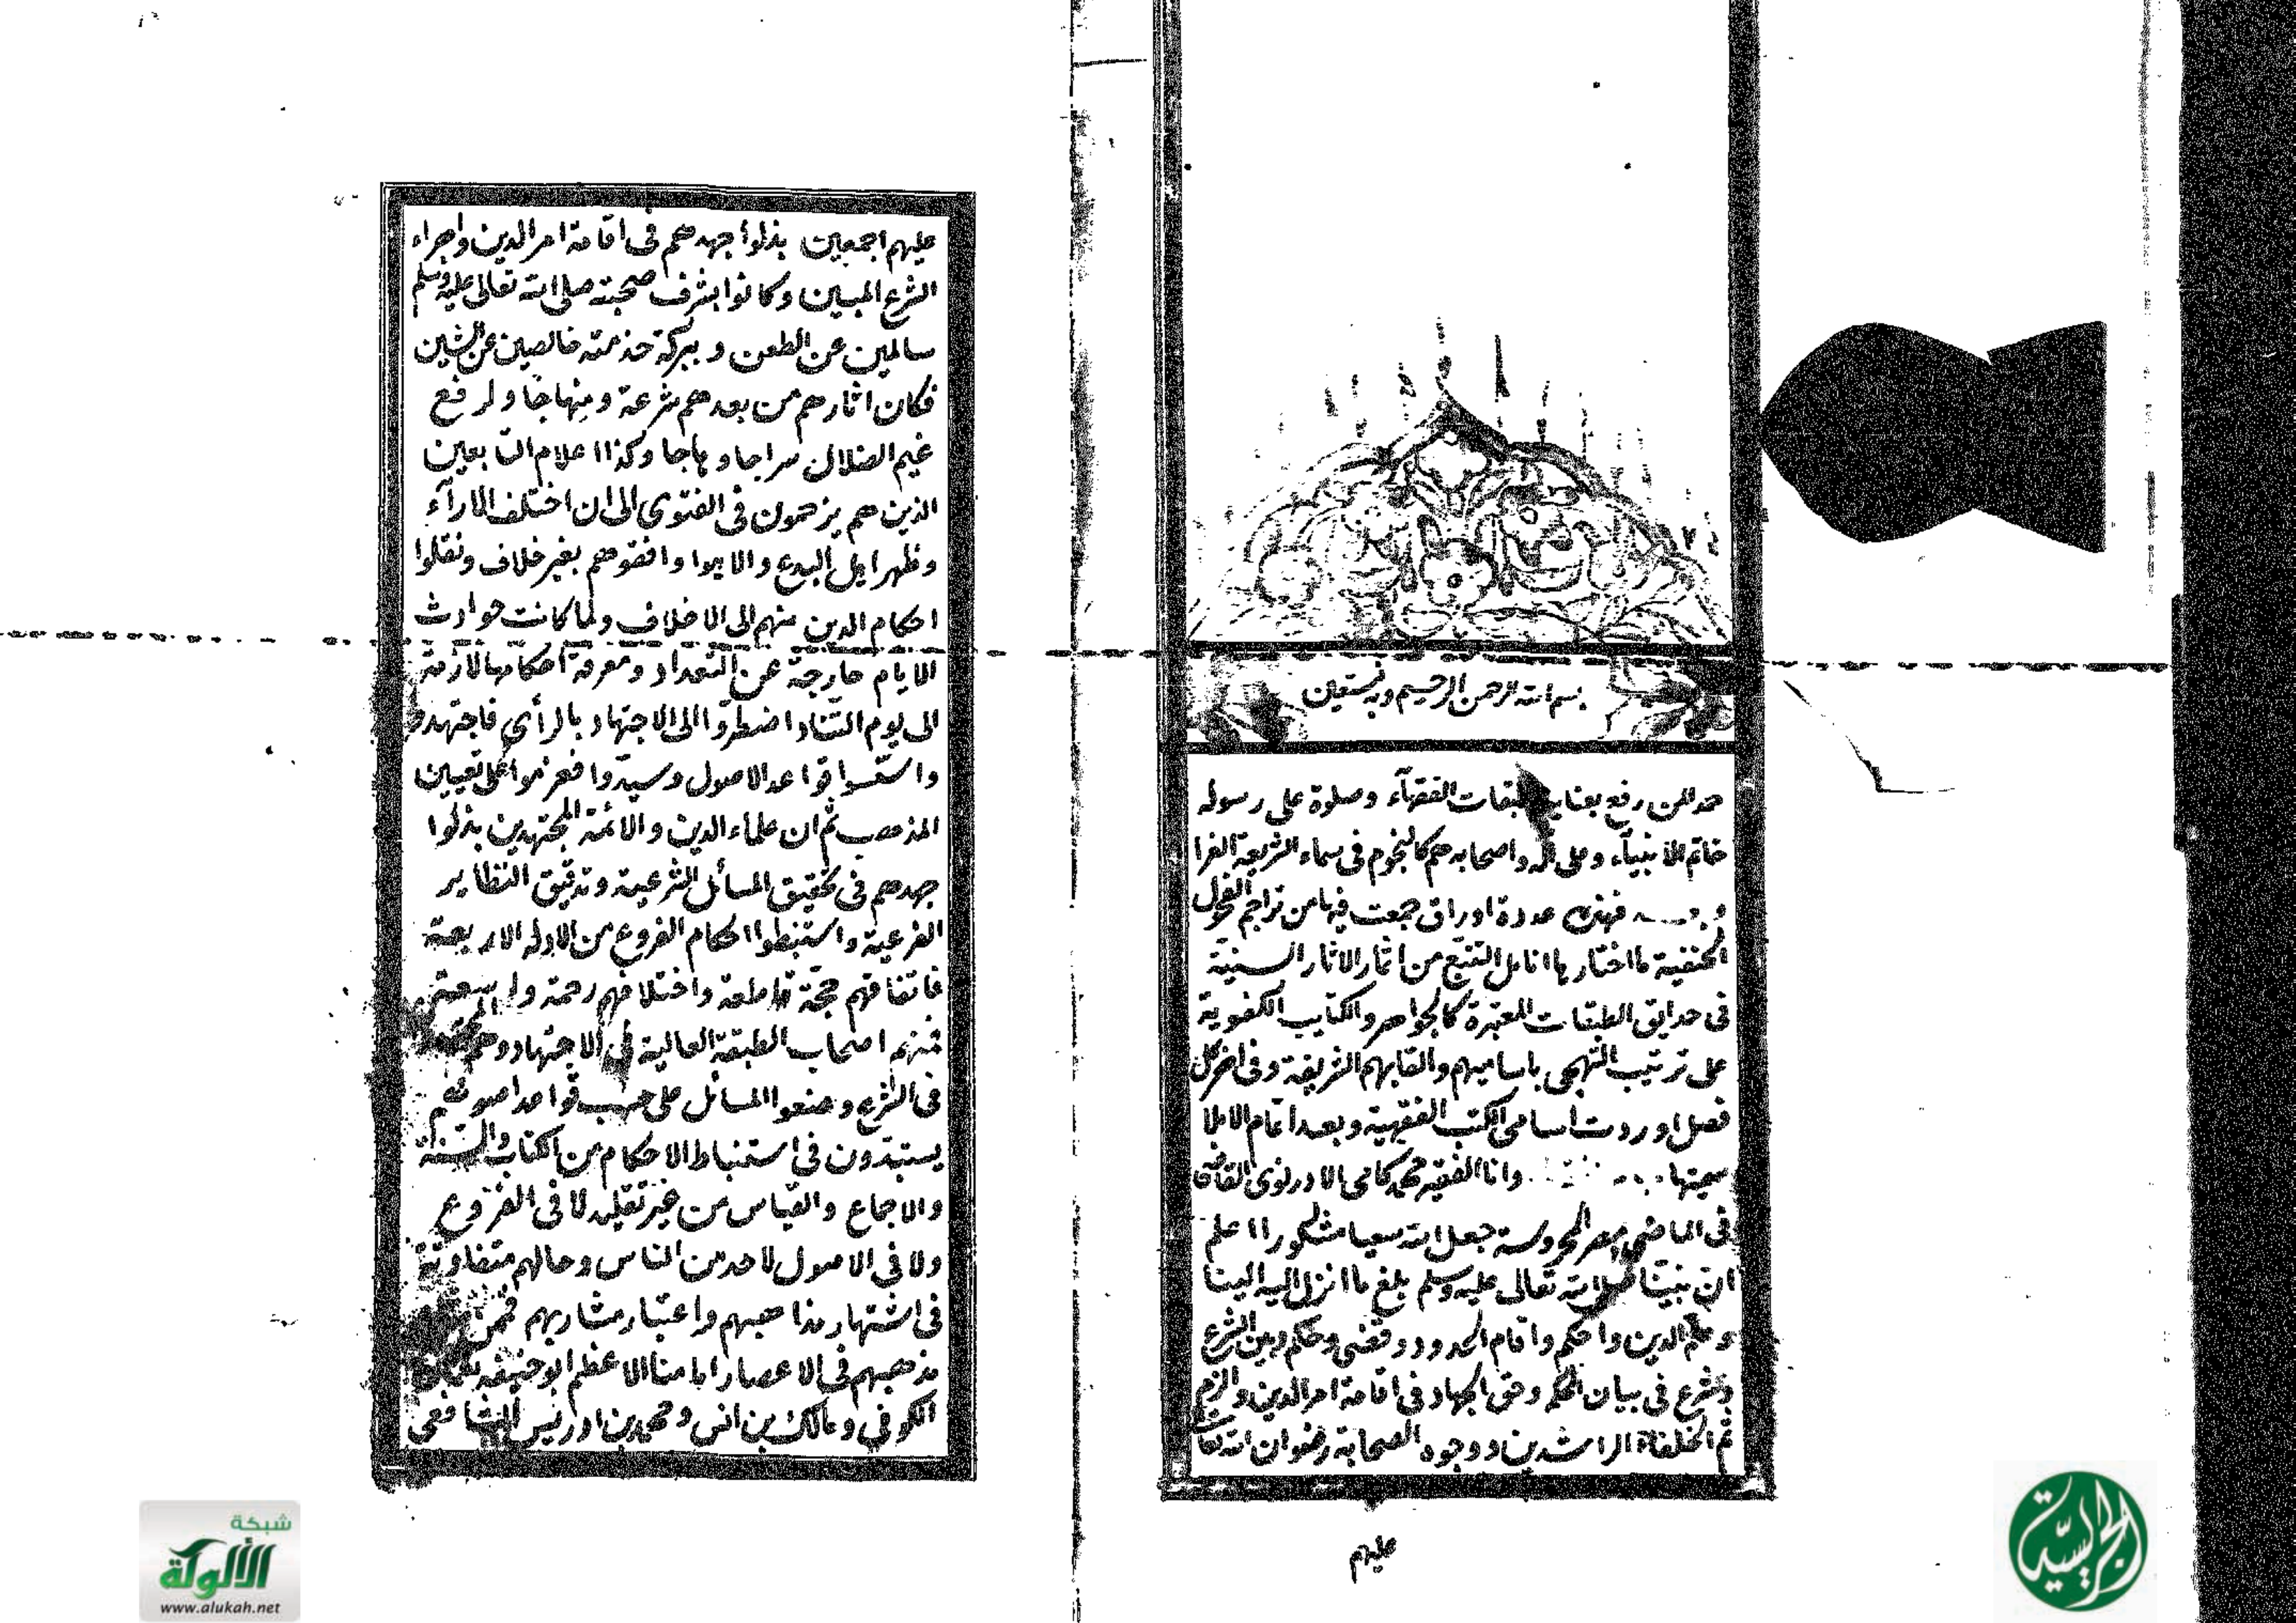 بسم الله الرحمن الرحيم وبه نستعين
حمدا لمن رفع بعنايته طبقات الفقهآء وصلوة على رسوله
خاتم الانبيآء وعلى آله واصحابه هم كالنجوم فى سماء الشريعة الغرا
وبعد فهذه عدة اوراق جمعت فيها من تراجم الفحول
الحنفية ما اختارها انامل التتبع من اثمار الاثار السنية
فى حدايق الطبقات المعتبرة كالجواهر والكتايب الكفوية
على ترتيب التهجى باساميهم والقابهم الشريفة وفى اخر كل
فصل اوردت اسامى الكتب الفقهية وبعد اتمام الاملا
سميتها وانا الفقير محمد كامى الادرنوى القاضى
فى الماضى بمصر المحروسة جعل الله سعيا مشكورا اعلم
ان نبينا صلى الله تعالى عليه وسلم بلغ ما انزل اليه الينا
وعلم الدين واحكم واقام الحدود وقضى وحكم وبين الشرع
وشرع فى بيان الحكم وحق الجهاد فى اقامة امر الدين والزم
ثم الخلفاء الراشدين ووجوه الصحابة رضوان الله تعالى
عليهم
عليهم اجمعين بذلوا جهدهم فى اقامة امر الدين واجراء
الشرع المبين وكانوا بشرف صحبته صلى الله تعالى عليه وسلم
سالمين عن الطعن و ببركة خدمته خالصين عن الشين
فكان اثارهم من بعدهم شرعة ومنهاجا ولرفع
غيم الضلال سراجا وهاجا وكذا اعلام التابعين
الذين هم يزحمون فى الفتوى الى ان اختلف الارآء
وظهر اهل البدع والاهوا وافقوهم بغير خلاف ونقلوا
احكام الدين منهم الى الاخلاف ولما كانت حوادث
الايام خارجة عن التعداد ومعرفة احكامها لازمة
الى يوم التناد اضطروا الى الاجتهاد بالرأى فاجتهدو
واسسوا قواعد الاصول وسيدوا فعزموا على تعيين
المذهب ثم ان علماء الدين والائمة المجتهدين بذلوا
جهدهم فى تحقيق المسائل الشرعية وتدقيق النظاير
الفرعية واستنبطوا احكام الفروع من الادلة الاربعة
فاتفاقهم حجة قاطعة واختلافهم رحمة واسعة
فمنهم اصحاب الطبقة العالية فى الاجتهاد وهم
فى الشرع وضعوا المسائل على حسب قواعد اصولهم
يستبدون فى استنباط الاحكام من الكتاب والسنة
والاجماع والقياس من غير تقليد لا فى الفروع
ولا فى الاصول لاحد من الناس وحالهم متفاوتة
فى اشتهار مذاهبهم واعتبار مشاربهم فممن
مذهبهم فى الاعصار امامنا الاعظم ابو حنيفة نعمان
الكوفى ومالك بن انس ومحمد بن ادريس الشافعى
شبكة
الألوكة
www.alukah.net